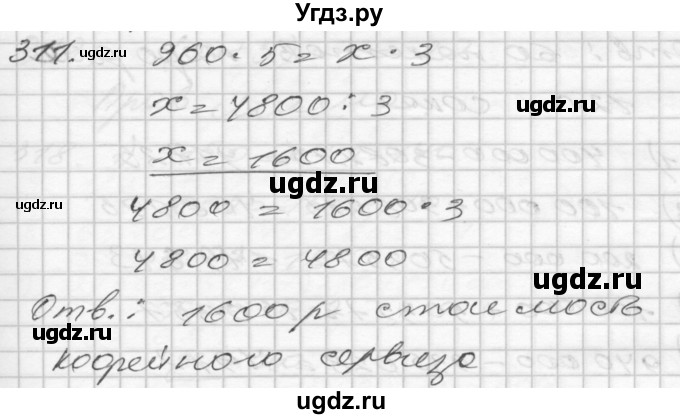 Угдз.ру
311. 960 · 5 = x · 3
x = 4800 : 3
x = 1600
4800 = 1600 · 3
4800 = 4800
Отв.: 1600 р стоимость
кофейного сервиза
ugdz.ru
ugdz.ru
ugdz.ru
ugdz.ru
ugdz.ru
ugdz.ru
ugdz.ru
ugdz.ru
ugdz.ru